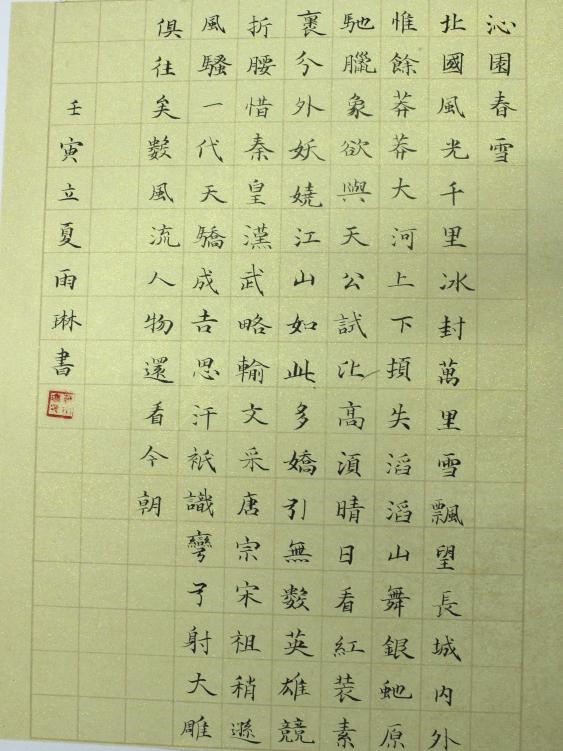 沁園春雪
北國風光千里冰封萬里雪飄望長城内外
惟餘莽莽大河上下頓失滔滔山舞銀虵原
馳臘象欲與天公試比高須晴日看紅装素
裹兮外妖嬈江山如此多嬌引無數英雄競
折腰惜秦皇漢武略輸文采唐宗宋祖稍遜
風騷一代天驕成吉思汗祇識彎弓射大雕
俱往矣數風流人物還看今朝
壬寅立夏雨琳書